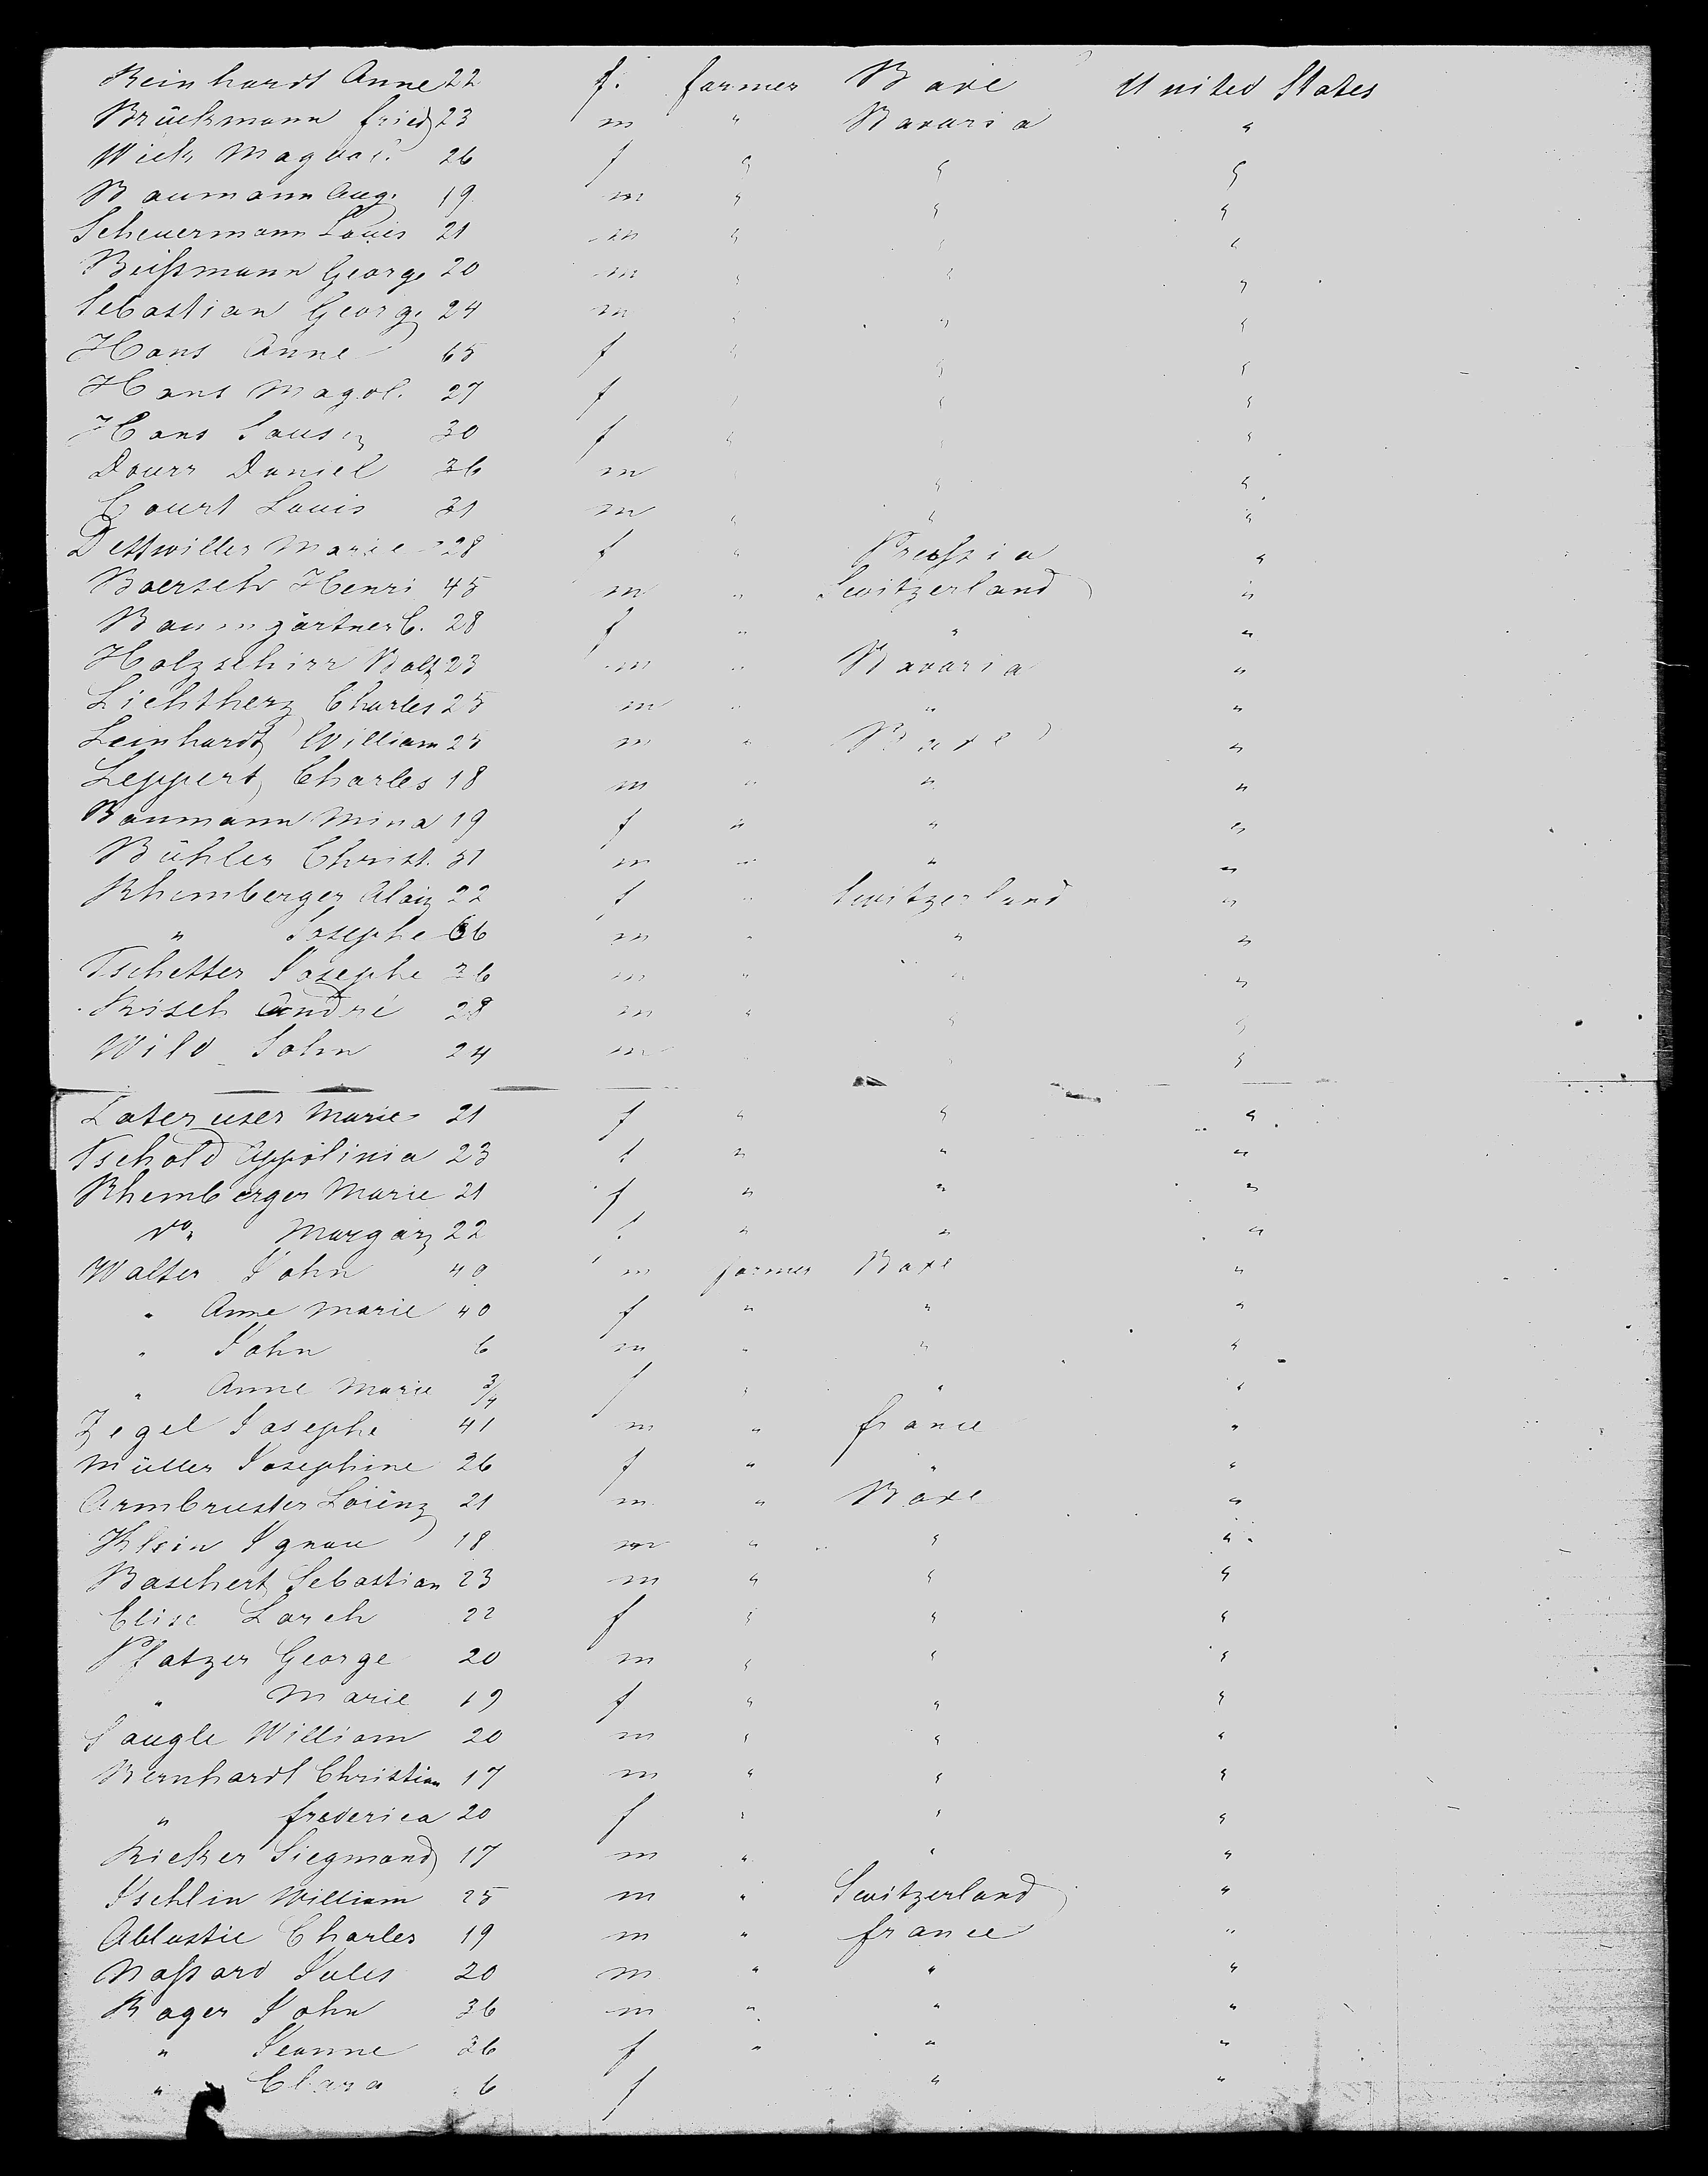 Reinhardt Anne 22 f. farmer Baxe United States
Brückmann fried 23 m " Bavaria "
Wick Magdal. 26 f " " "
Baumann Aug. 19 m " " "
Scheuermann Louis 21 m " " "
Beißmann George 20 m " " "
Sebastian George 24 m " " "
Hans Anne 65 f " " "
Hans Magol. 27 f " " "
Hans 30 f " " "
Dourr Daniel 36 m " "
Court Louis 31 m " " "
Dettwiller Marie 28 f " Preussia "
Baersch Henri 45 m " Switzerland "
Baumgärtner C. 28 f " " "
Holzschirr Balt 23 m " Bavaria "
Lichtherz Charles 25 m " " "
Leinhardt William 25 m " Baxe "
Leppert Charles 18 m " " "
Baumann Mina 19 f " " "
Bühler Christ. 31 m " " "
Rhemberger Aloiz 22 f " Switzerland "
" Josephe 66 m " " "
Tschetter Josephe 36 m " " "
Risch André 28 m " " "
Wild John 24 m "
Lateruser Marie 21 f " " "
Tschold Appolinia 23 f " " "
Rhemberger Marie 21 f " " "
do. Margarz 22 f " " "
Walter John 40 m farmer Baxe "
" Anne Marie 40 f " " "
" John 6 m " " "
" Anne Marie 3/4 f " " "
Zegel Josephe 41 m " france "
Müller Josephine 26 f " " "
Armbruster Lorenz 21 m " Baxe "
Klein Ignace 18 m " " "
Baschert Sebastian 23 m " " "
Elise Larch 22 f " " "
Pfatzer George 20 m " " "
" Marie 19 f " " "
Saugle William 20 m " " "
Bernhardt Christian 17 m " " "
" frederica 20 f " " "
Rieker Siegmond 17 m " " "
Ischlin William 25 m " Switzerland "
Ablastie Charles 19 m " france "
Naßard Jules 20 m " " "
Roger John 36 m " " "
" Jeanne 26 f " " "
" Clara 6 f " "